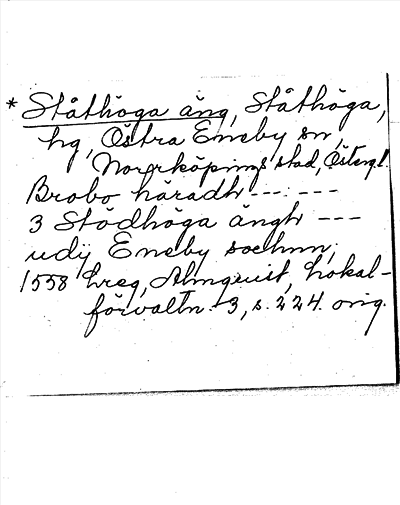 * Ståthöga äng, Ståthöga,
hg, Östra Eneby sn,
Norrköpings stad, Östergl.
Brobo häradh --- ---
3 Stödhöga ängh ---
udij Eneby sochnn,
1558 hreg, Almquist, Lokal-
förvaltn. 3, s. 224. orig.